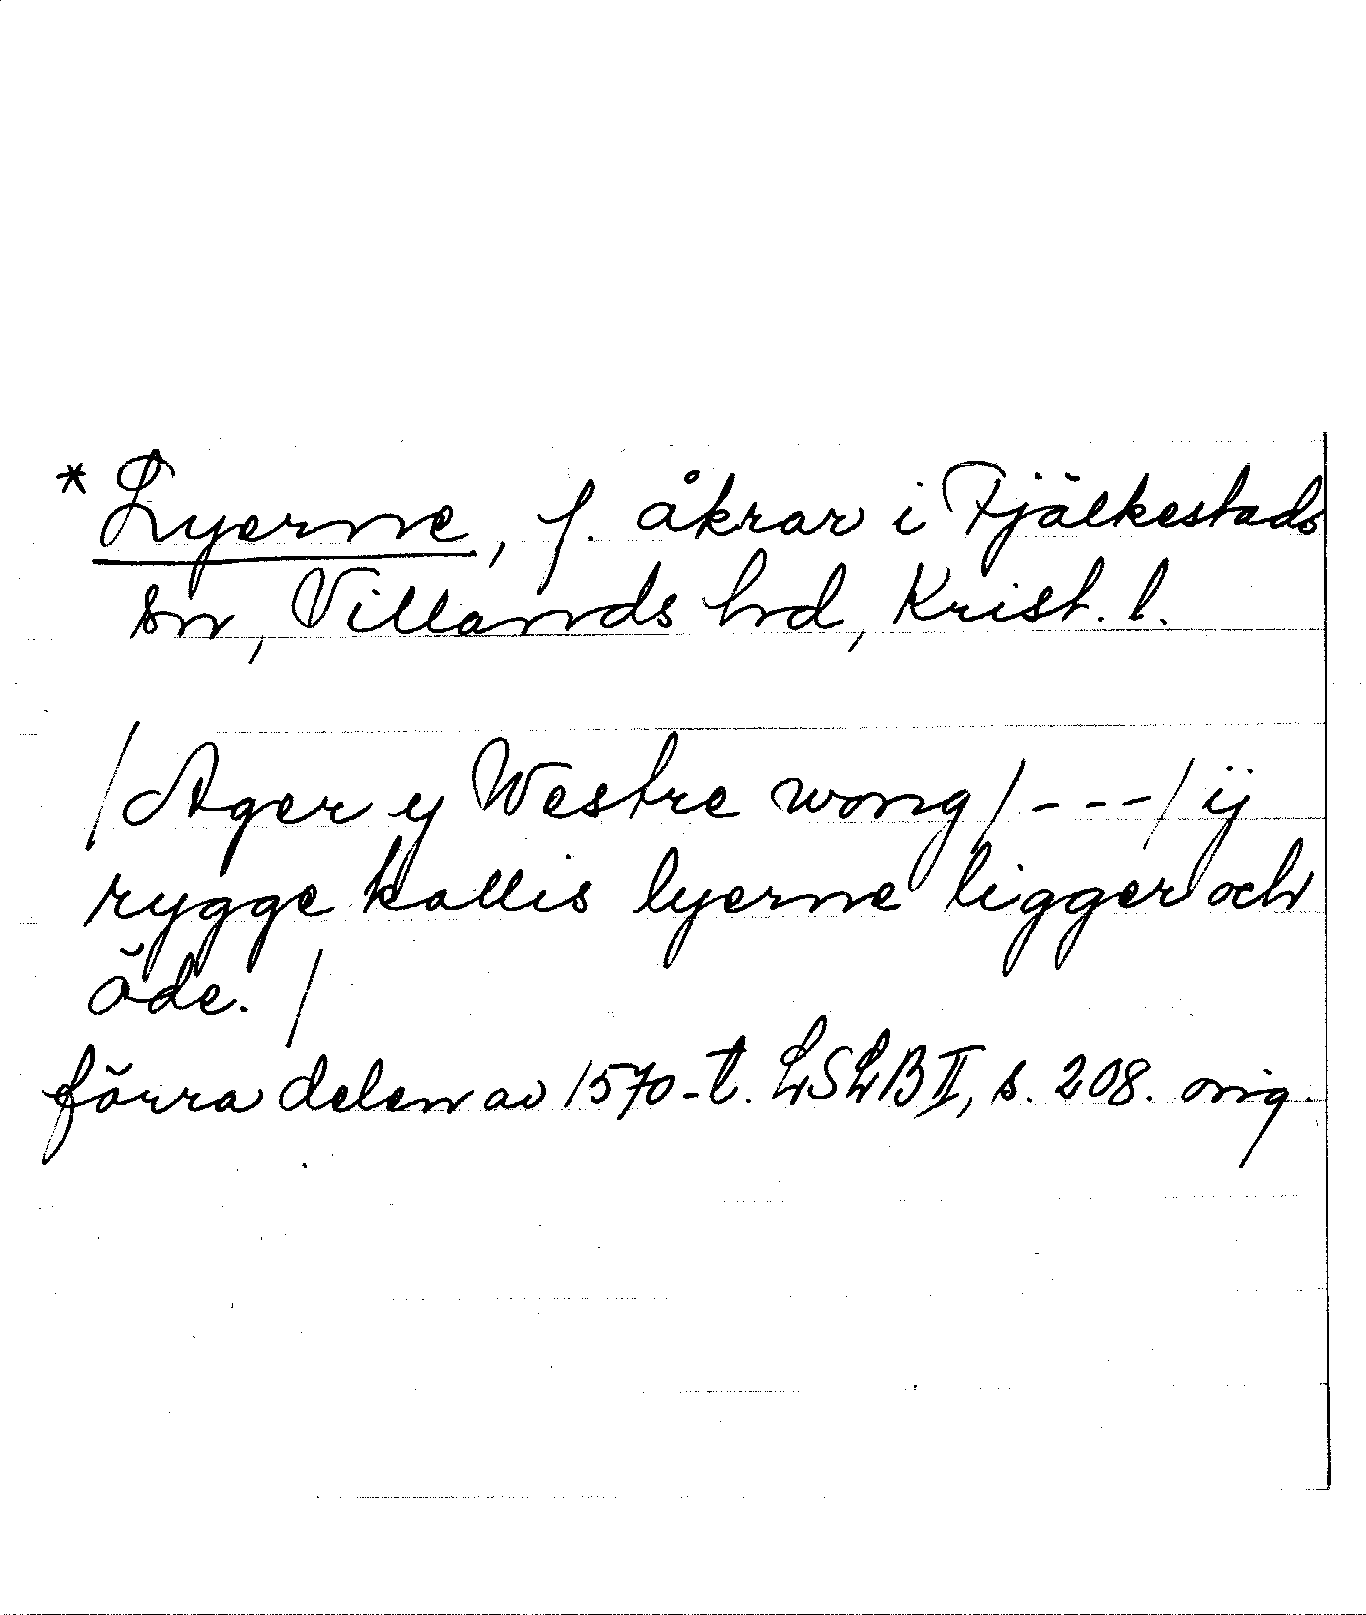 * Lyerne, f. åkrar i Fjälkestads
sn, Villands hd, Krist. l.
/Ager y Westre wong/---/ij
rygge kallis lyerne ligger och
öde./
förra delen av 1570-t. LSLB II, s. 208. orig.